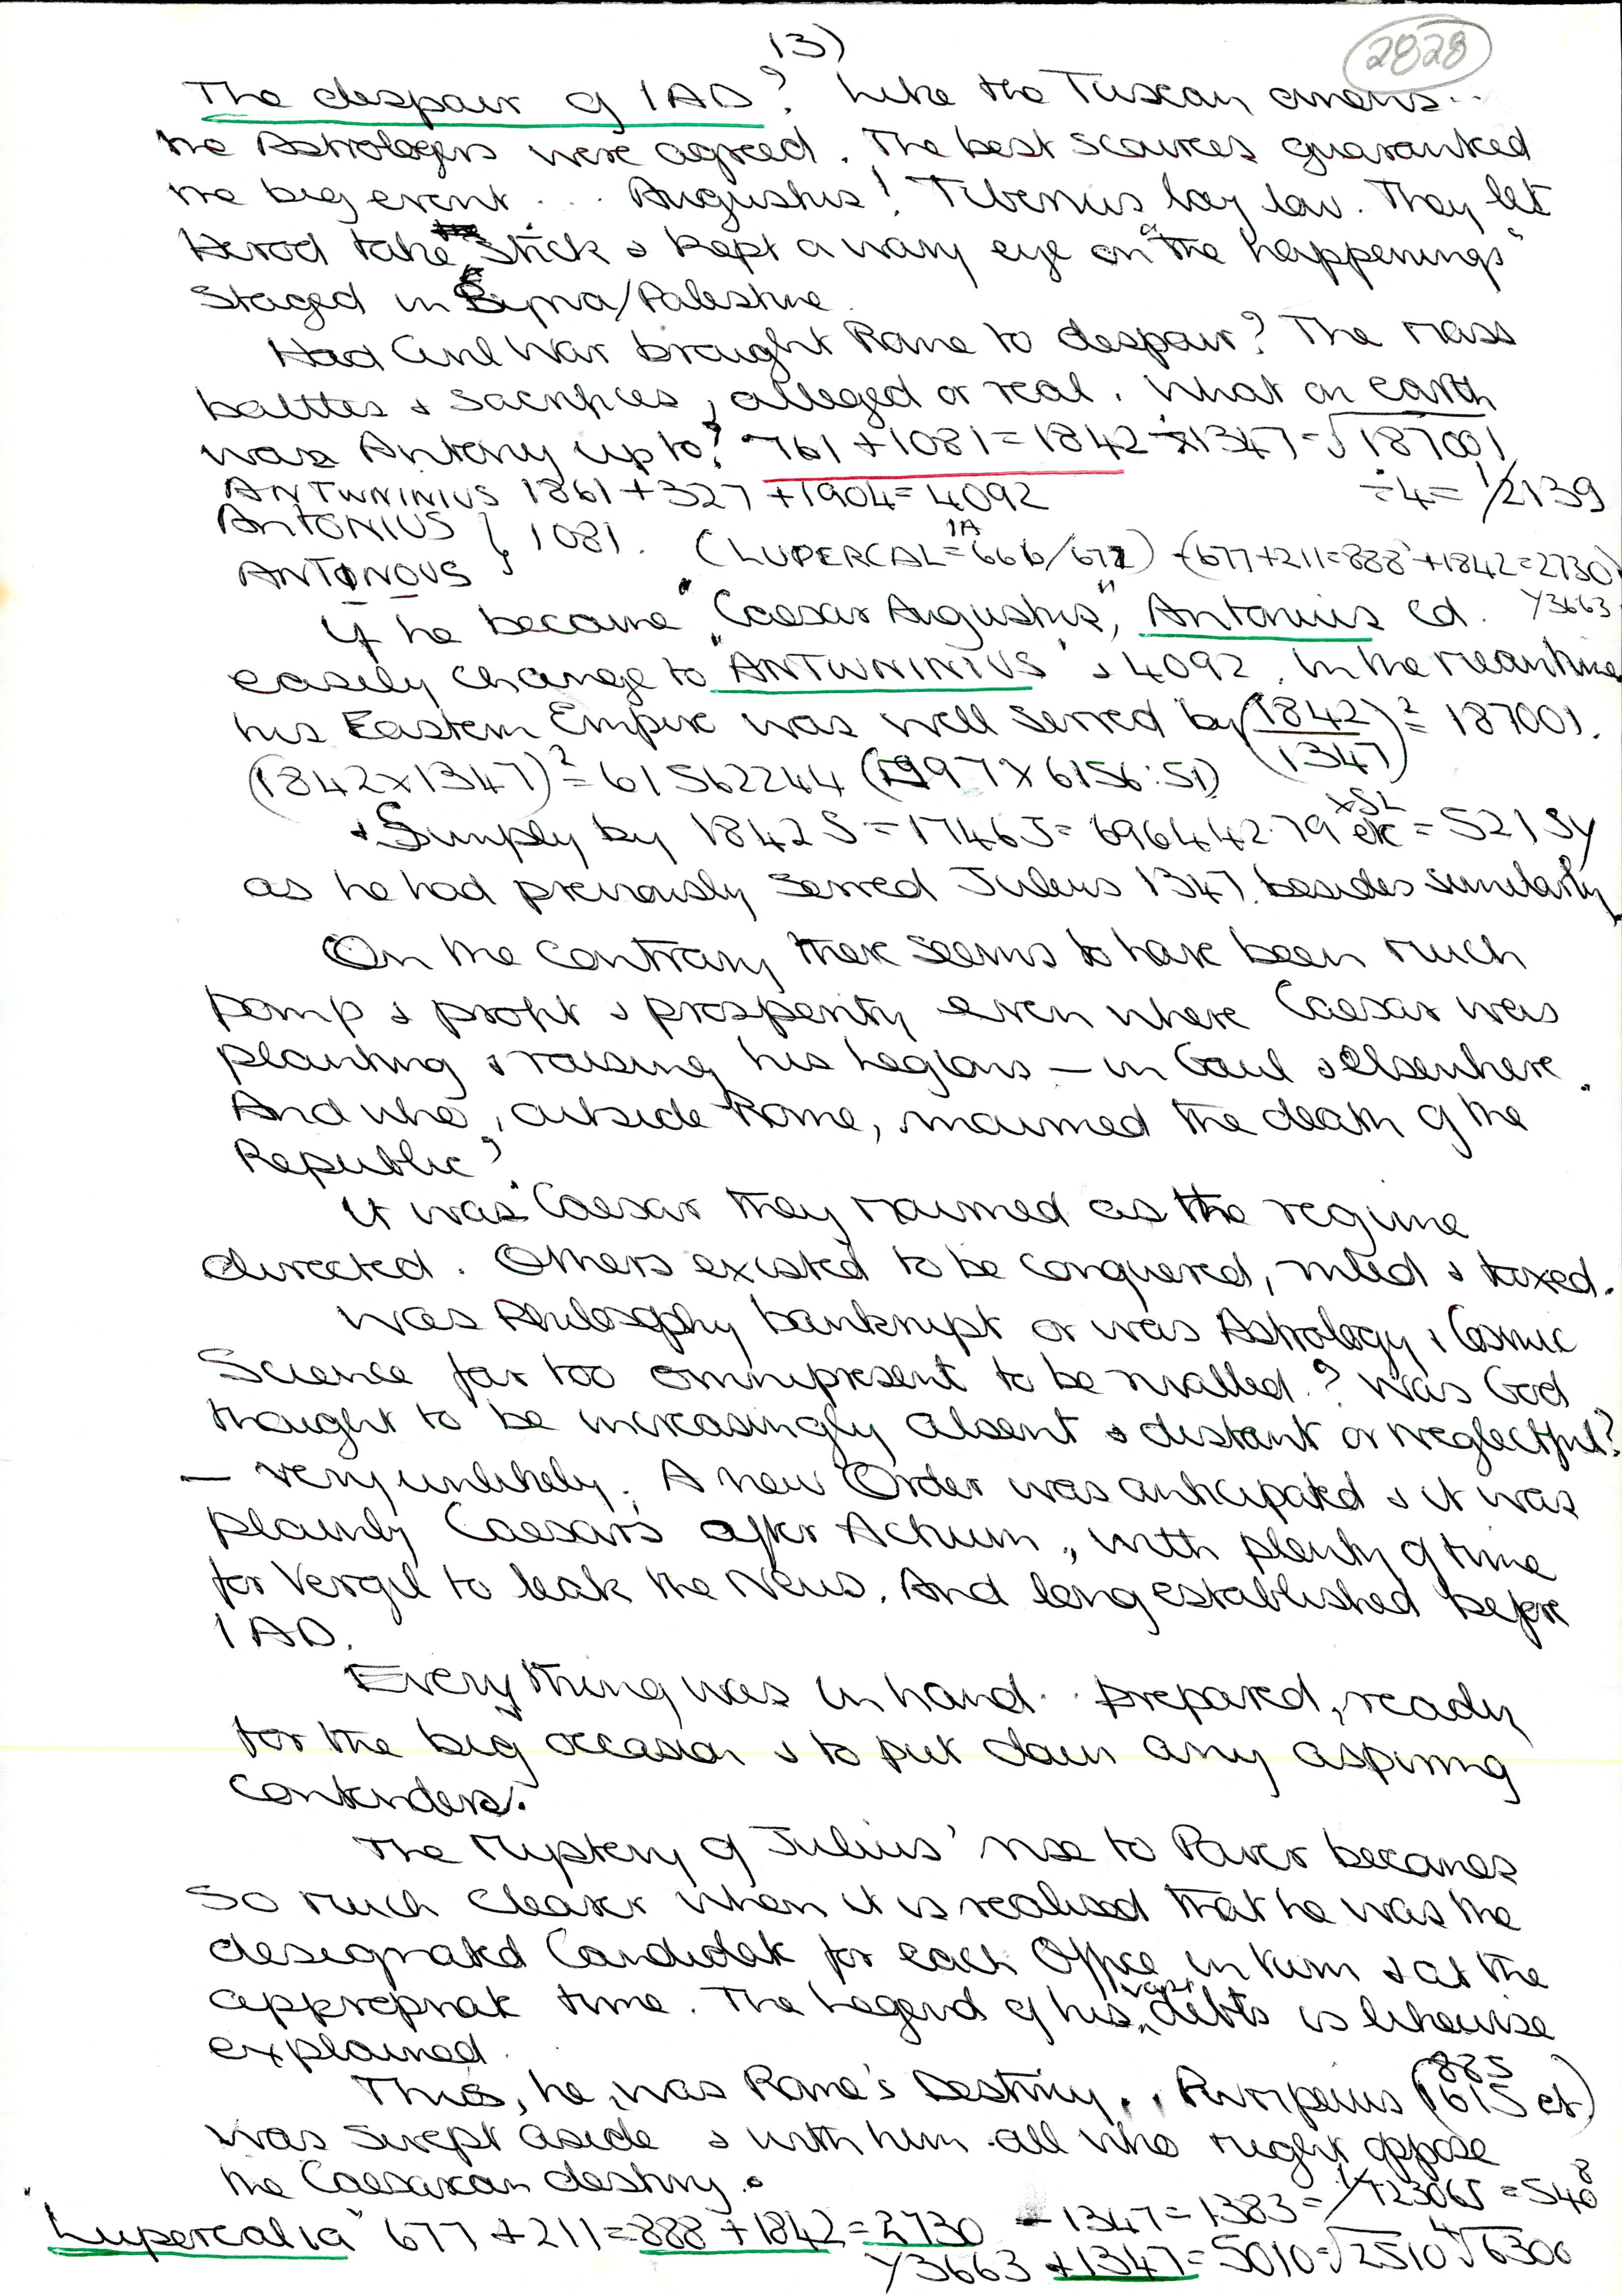 13)
2828
The despair of 1AD? Like the Tuscan omens...
the Astrologers were agreed. The best scources guaranteed
the big event... Augustus! Tiberius lay low. They let
Herod take stick & kept a wary eye on "the happenings"
staged in Syria/Palestine.
Had Civil War brought Rome to despair? The mass
battles & sacrifices, alleged or real. What on earth
was Antony up to? 761 + 1081 = 1842 ÷ 1347 = √187001
ANTWNINIUS 1861 + 327 + 1904 = 4092 ÷4= 1/2139
ANTONIUS } 1081. (LUPERCAL = 666/677) (677+211=888+1842=2730)
ANTONOUS
If he became "Caesar Augustus", Antonius cd. Y3663
easily change to "ANTWNINIUS" & 4092. In the meantime
his Eastern Empire was well served by (1842/1347)² = 187001.
(1842 x 1347)² = 61562244 (1997 x 6156:51)
& Simply by 1842 S = 1746J = 696442.79 etc = 521 Sy
as he had previously served Julius 1347. besides similarly
On the contrary there seems to have been much
pomp & profit & prosperity even where Caesar was
planting & raising his legions — in Gaul & elsewhere.
And who, outside Rome, mourned the death of the
Republic?
It was Caesar they mourned as the regime
directed. Others existed to be conquered, ruled & taxed.
Was Philosophy bankrupt or was Astrology & Cosmic
Science far too omnipresent to be rivalled.? Was God
thought to be increasingly absent & distant or neglectful?
— very unlikely. A new Order was anticipated & it was
plainly Caesar's after Actium, with plenty of time
for Vergil to leak the News. And long established before
1 AD.
Everything was in hand.. prepared, ready
for the big occasion & to put down any aspiring
contenders.
The Mystery of Julius' rise to Power becomes
so much clearer when it is realised that he was the
designated Candidate for each Office in turn & at the
appropriate time. The legend of his vast debts is likewise
explained.
Thus, he was Rome's Destiny.. Pwmpeius (1615 etc) 885
was swept aside & with him all who might oppose
the Caesarean destiny.
"Lupercalia" 677 + 211 = 888 + 1842 = 2730 - 1347 = 1383 = 1/723065 = 540
Y3663 + 1347 = 5010 = √2510 ∜6300